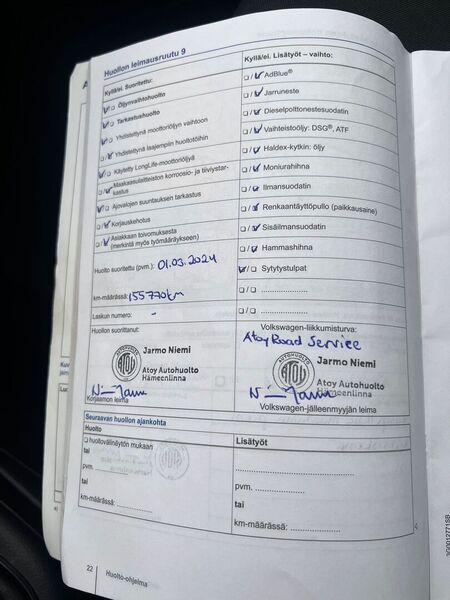 Huollon leimausruutu 9
Kyllä/ei. Suoritettu:
Öljynvaihtohuolto
Tarkastushuolto
Yhdistettynä moottoriöljyn vaihtoon
Yhdistettynä laajempiin huoltotöihin
Käytetty LongLife-moottoriöljyä
Maakaasulaitteiston korroosio- ja tiiviystar-
kastus
Ajovalojen suuntauksen tarkastus
Korjauskehotus
Asiakkaan toivomuksesta
(merkintä myös työmääräykseen)
Huolto suoritettu (pvm.): 01.03.2024
km-määrässä: 155770km
Laskun numero: -
Huollon suorittanut:
Jarmo Niemi
ATOY
Atoy Autohuolto
Hämeenlinna
Korjaamon leima
Kyllä/ei. Lisätyöt – vaihto:
AdBlue®
Jarruneste
Dieselpolttonestesuodatin
Vaihteistoöljy: DSG®, ATF
Haldex-kytkin: öljy
Moniurahihna
Ilmansuodatin
Renkaantäyttöpullo (paikkausaine)
Sisäilmansuodatin
Hammashihna
Sytytystulpat
Volkswagen-liikkumisturva:
Atoy Road Service
AUTOHUOLTO
Jarmo Niemi
ATOY
Atoy Autohuolto
Hämeenlinna
Volkswagen-jälleenmyyjän leima
Seuraavan huollon ajankohta
Huolto
huoltovälinäytön mukaan
tai
pvm.
tai
km-määrässä:
Lisätyöt
pvm.
tai
km-määrässä:
22
Huolto-ohjelma